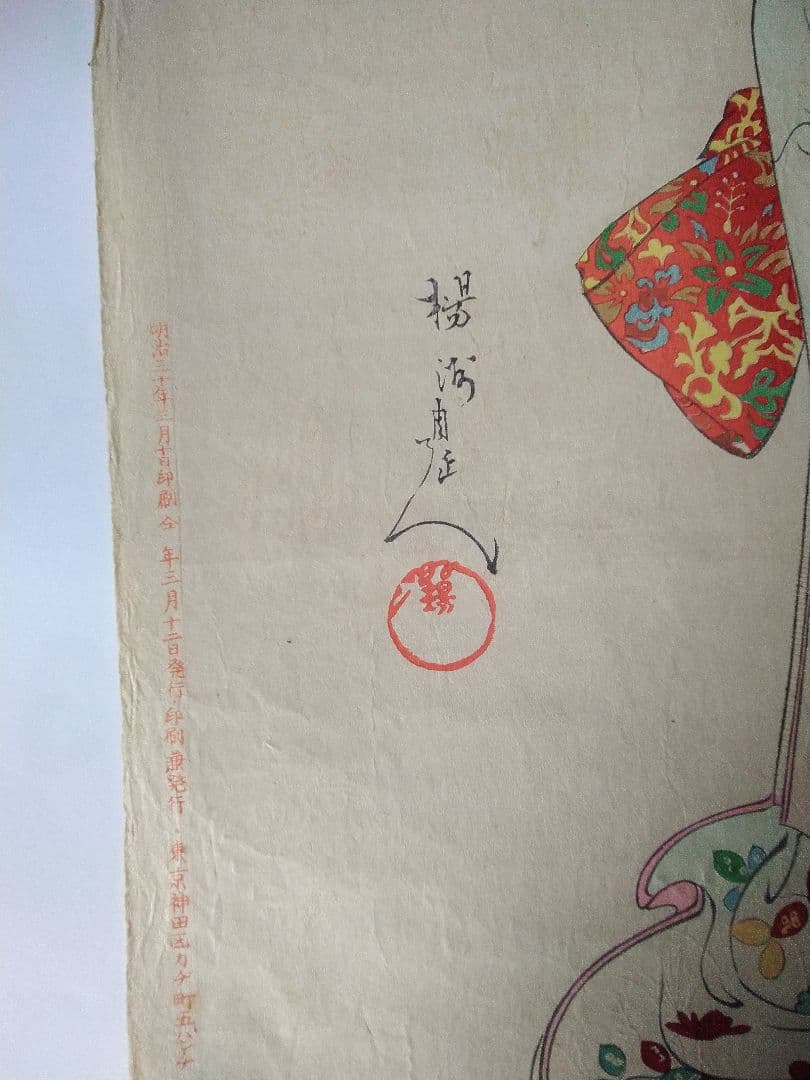 楊洲周延
明治三十年三月十日印刷 仝 年三月十二日発行・印刷兼発行・東京神田区カチ町五バンチ